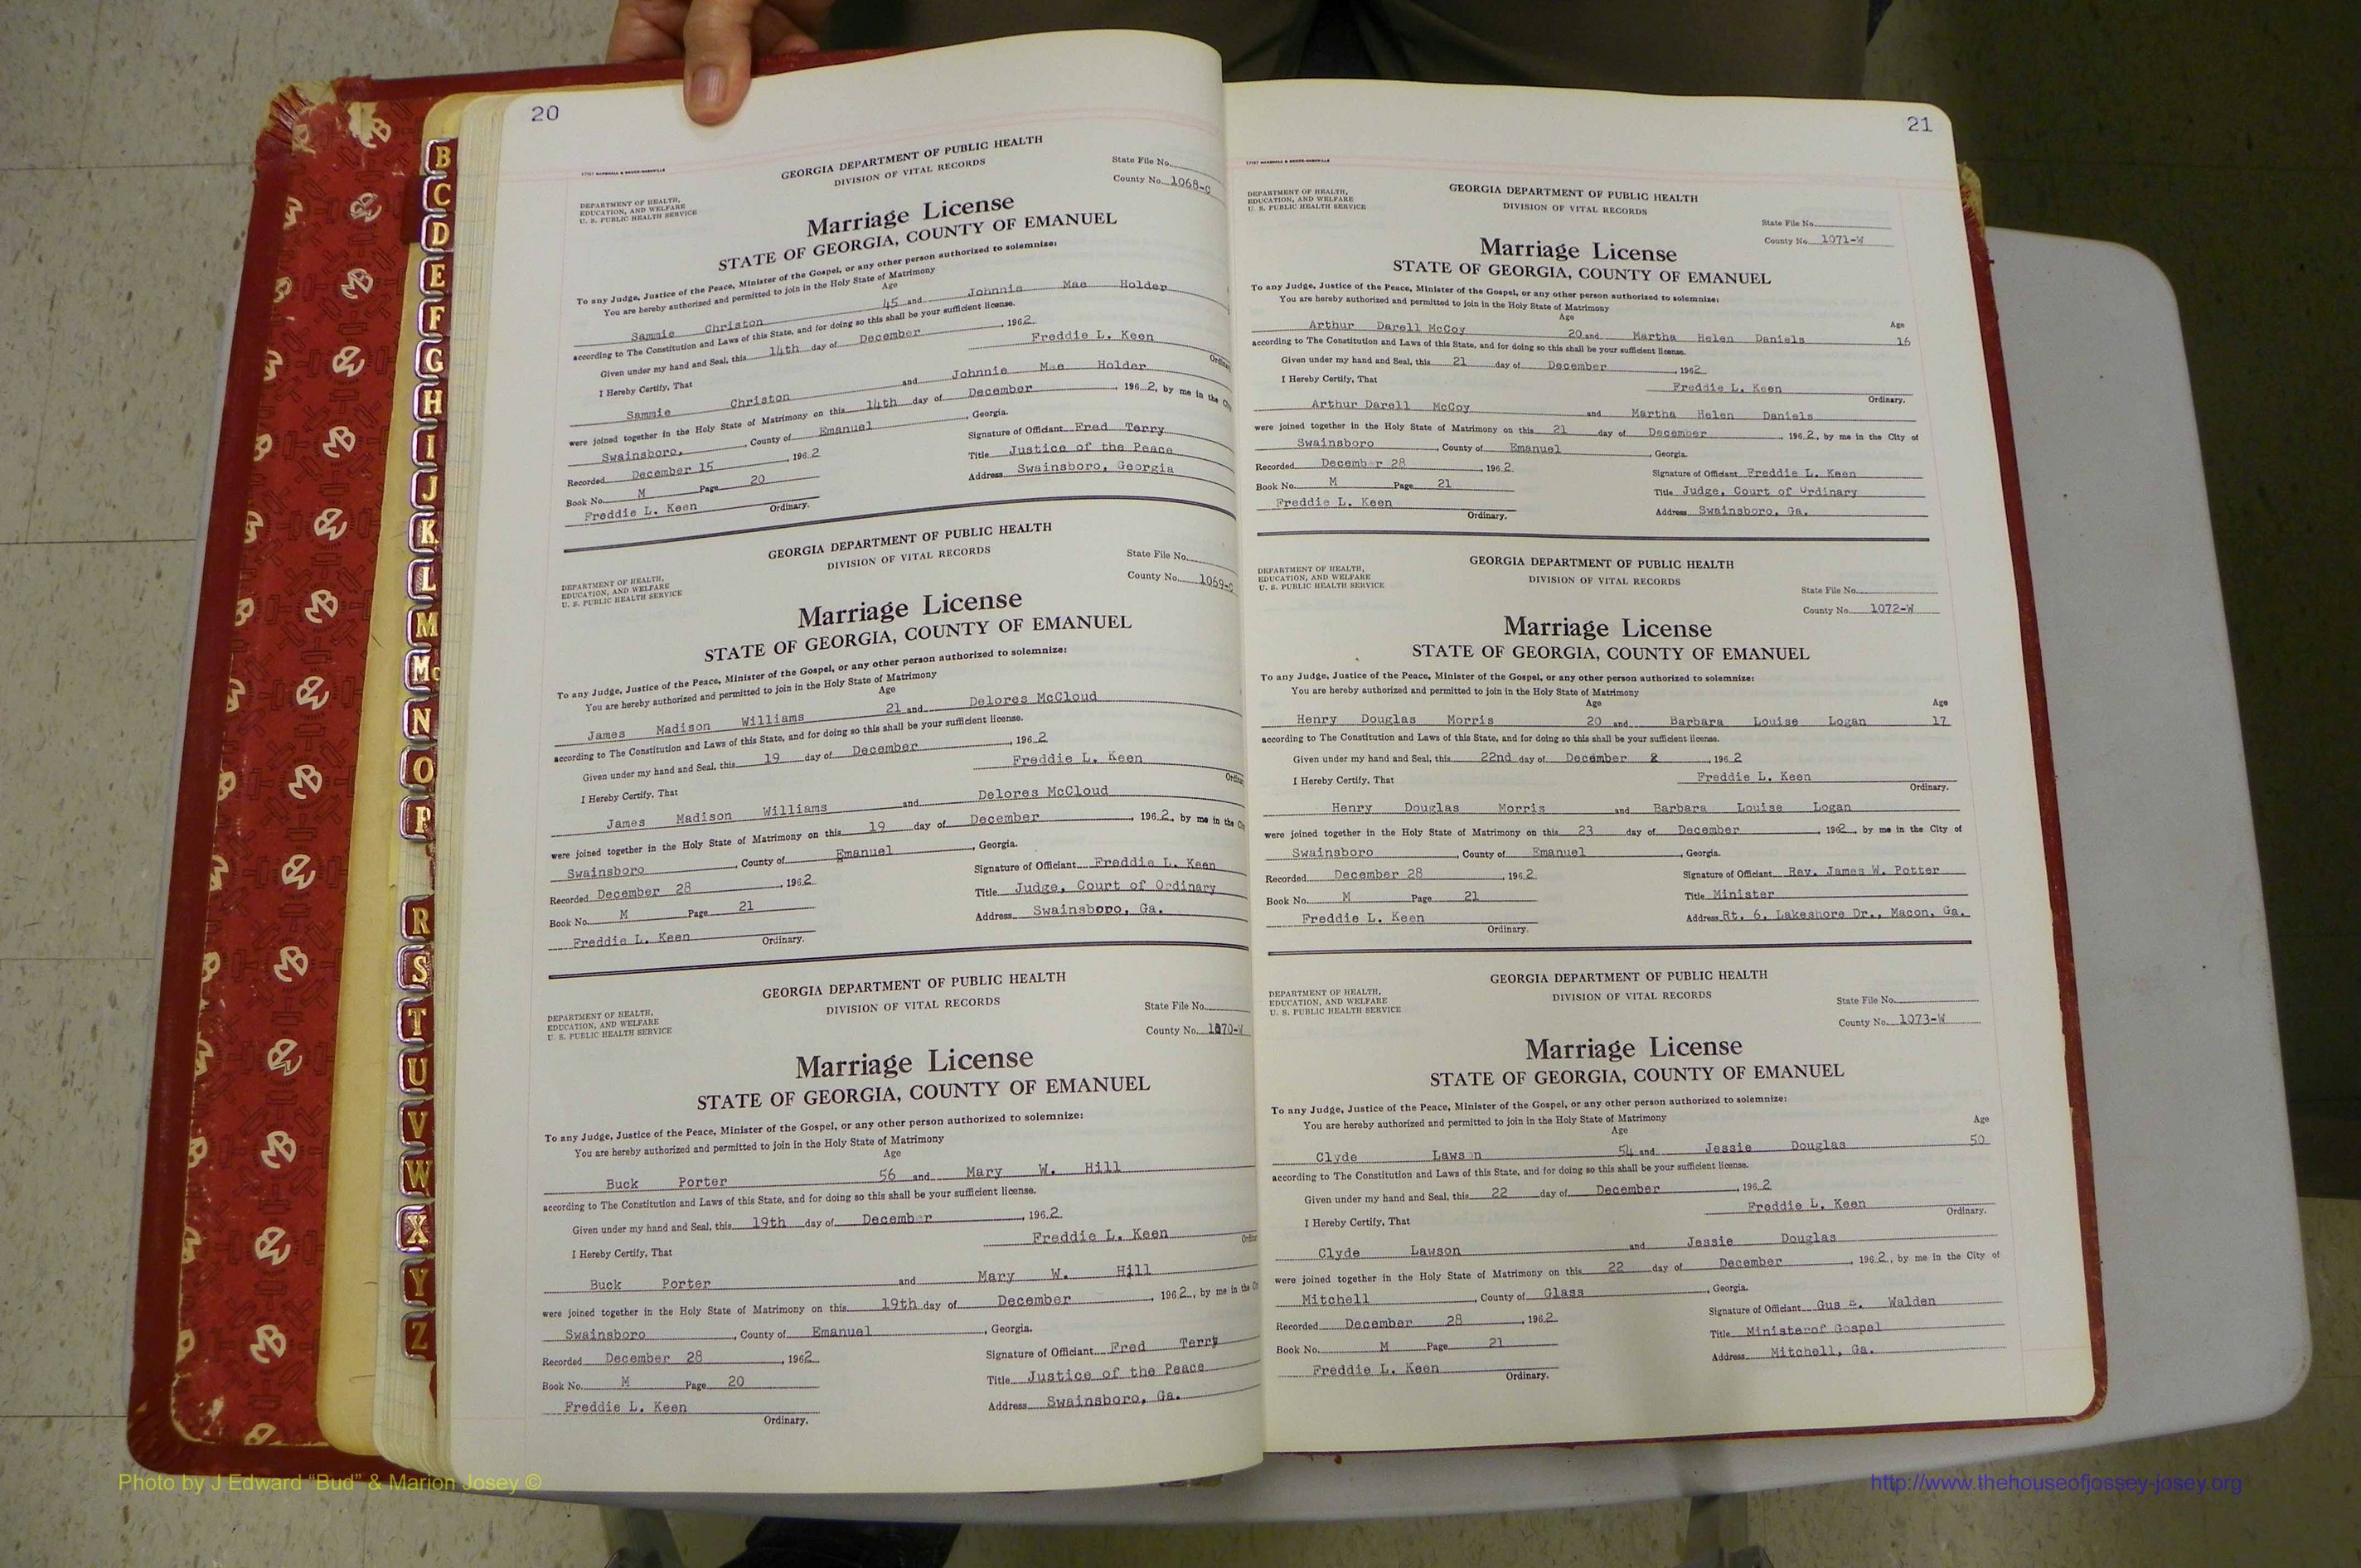 20
17757 MARSHALL & BRUCE-NASHVILLE
GEORGIA DEPARTMENT OF PUBLIC HEALTH
DIVISION OF VITAL RECORDS
State File No.
County No. 1068-C
DEPARTMENT OF HEALTH,
EDUCATION, AND WELFARE
U. S. PUBLIC HEALTH SERVICE
Marriage License
STATE OF GEORGIA, COUNTY OF EMANUEL
To any Judge, Justice of the Peace, Minister of the Gospel, or any other person authorized to solemnize:
You are hereby authorized and permitted to join in the Holy State of Matrimony
Age
Sammie Christon 45 and Johnnie Mae Holder
according to The Constitution and Laws of this State, and for doing so this shall be your sufficient license.
Given under my hand and Seal, this 14th day of December, 1962
Freddie L. Keen
I Hereby Certify, That
Sammie Christon and Johnnie Mae Holder
were joined together in the Holy State of Matrimony on this 14th day of December, 1962, by me in the
Swainsboro, County of Emanuel, Georgia.
Recorded December 15, 1962
Signature of Officiant Fred Terry
Title Justice of the Peace
Book No. M Page 20
Address Swainsboro, Georgia
Freddie L. Keen
Ordinary.
GEORGIA DEPARTMENT OF PUBLIC HEALTH
DIVISION OF VITAL RECORDS
State File No.
County No. 1069-C
DEPARTMENT OF HEALTH,
EDUCATION, AND WELFARE
U. S. PUBLIC HEALTH SERVICE
Marriage License
STATE OF GEORGIA, COUNTY OF EMANUEL
To any Judge, Justice of the Peace, Minister of the Gospel, or any other person authorized to solemnize:
You are hereby authorized and permitted to join in the Holy State of Matrimony
Age
James Madison Williams 21 and Delores McCloud
according to The Constitution and Laws of this State, and for doing so this shall be your sufficient license.
Given under my hand and Seal, this 19 day of December, 1962
Freddie L. Keen
I Hereby Certify, That
James Madison Williams and Delores McCloud
were joined together in the Holy State of Matrimony on this 19 day of December, 1962, by me in the
Swainsboro, County of Emanuel, Georgia.
Recorded December 28, 1962
Signature of Officiant Freddie L. Keen
Title Judge, Court of Ordinary
Book No. M Page 21
Address Swainsboro, Ga.
Freddie L. Keen
Ordinary.
GEORGIA DEPARTMENT OF PUBLIC HEALTH
DIVISION OF VITAL RECORDS
State File No.
County No. 1070-W
DEPARTMENT OF HEALTH,
EDUCATION, AND WELFARE
U. S. PUBLIC HEALTH SERVICE
Marriage License
STATE OF GEORGIA, COUNTY OF EMANUEL
To any Judge, Justice of the Peace, Minister of the Gospel, or any other person authorized to solemnize:
You are hereby authorized and permitted to join in the Holy State of Matrimony
Age
Buck Porter 56 and Mary W. Hill
according to The Constitution and Laws of this State, and for doing so this shall be your sufficient license.
Given under my hand and Seal, this 19th day of December, 1962
Freddie L. Keen
I Hereby Certify, That
Buck Porter and Mary W. Hill
were joined together in the Holy State of Matrimony on this 19th day of December, 1962, by me in the
Swainsboro, County of Emanuel, Georgia.
Recorded December 28, 1962
Signature of Officiant Fred Terry
Title Justice of the Peace
Book No. M Page 20
Address Swainsboro, Ga.
Freddie L. Keen
Ordinary.
21
17757 MARSHALL & BRUCE-NASHVILLE
GEORGIA DEPARTMENT OF PUBLIC HEALTH
DIVISION OF VITAL RECORDS
State File No.
County No. 1071-W
DEPARTMENT OF HEALTH,
EDUCATION, AND WELFARE
U. S. PUBLIC HEALTH SERVICE
Marriage License
STATE OF GEORGIA, COUNTY OF EMANUEL
To any Judge, Justice of the Peace, Minister of the Gospel, or any other person authorized to solemnize:
You are hereby authorized and permitted to join in the Holy State of Matrimony
Age Age
Arthur Darell McCoy 20 and Martha Helen Daniels 16
according to The Constitution and Laws of this State, and for doing so this shall be your sufficient license.
Given under my hand and Seal, this 21 day of December, 1962
Freddie L. Keen
I Hereby Certify, That
Ordinary.
Arthur Darell McCoy and Martha Helen Daniels
were joined together in the Holy State of Matrimony on this 21 day of December, 1962, by me in the City of
Swainsboro, County of Emanuel, Georgia.
Recorded December 28, 1962
Signature of Officiant Freddie L. Keen
Book No. M Page 21
Title Judge, Court of Ordinary
Freddie L. Keen
Address Swainsboro, Ga.
Ordinary.
GEORGIA DEPARTMENT OF PUBLIC HEALTH
DIVISION OF VITAL RECORDS
State File No.
County No. 1072-W
DEPARTMENT OF HEALTH,
EDUCATION, AND WELFARE
U. S. PUBLIC HEALTH SERVICE
Marriage License
STATE OF GEORGIA, COUNTY OF EMANUEL
To any Judge, Justice of the Peace, Minister of the Gospel, or any other person authorized to solemnize:
You are hereby authorized and permitted to join in the Holy State of Matrimony
Age Age
Henry Douglas Morris 20 and Barbara Louise Logan 17
according to The Constitution and Laws of this State, and for doing so this shall be your sufficient license.
Given under my hand and Seal, this 22nd day of December 2, 1962
Freddie L. Keen
I Hereby Certify, That
Ordinary.
Henry Douglas Morris and Barbara Louise Logan
were joined together in the Holy State of Matrimony on this 23 day of December, 1962, by me in the City of
Swainsboro, County of Emanuel, Georgia.
Recorded December 28, 1962
Signature of Officiant Rev. James W. Potter
Book No. M Page 21
Title Minister
Freddie L. Keen
Address Rt. 6, Lakeshore Dr., Macon, Ga.
Ordinary.
GEORGIA DEPARTMENT OF PUBLIC HEALTH
DIVISION OF VITAL RECORDS
State File No.
County No. 1073-W
DEPARTMENT OF HEALTH,
EDUCATION, AND WELFARE
U. S. PUBLIC HEALTH SERVICE
Marriage License
STATE OF GEORGIA, COUNTY OF EMANUEL
To any Judge, Justice of the Peace, Minister of the Gospel, or any other person authorized to solemnize:
You are hereby authorized and permitted to join in the Holy State of Matrimony
Age Age
Clyde Lawson 54 and Jessie Douglas 50
according to The Constitution and Laws of this State, and for doing so this shall be your sufficient license.
Given under my hand and Seal, this 22 day of December, 1962
Freddie L. Keen
I Hereby Certify, That
Ordinary.
Clyde Lawson and Jessie Douglas
were joined together in the Holy State of Matrimony on this 22 day of December, 1962, by me in the City of
Mitchell, County of Glass, Georgia.
Recorded December 28, 1962
Signature of Officiant Gus E. Walden
Book No. M Page 21
Title Ministerof Gospel
Freddie L. Keen
Address Mitchell, Ga.
Ordinary.
B
C
D
E
F
G
H
I
J
K
L
M
Mc
N
O
P
R
S
T
U
V
W
X
Y
Z
Photo by J Edward “Bud” & Marion Josey ©
http://www.thehouseofjossey-josey.org